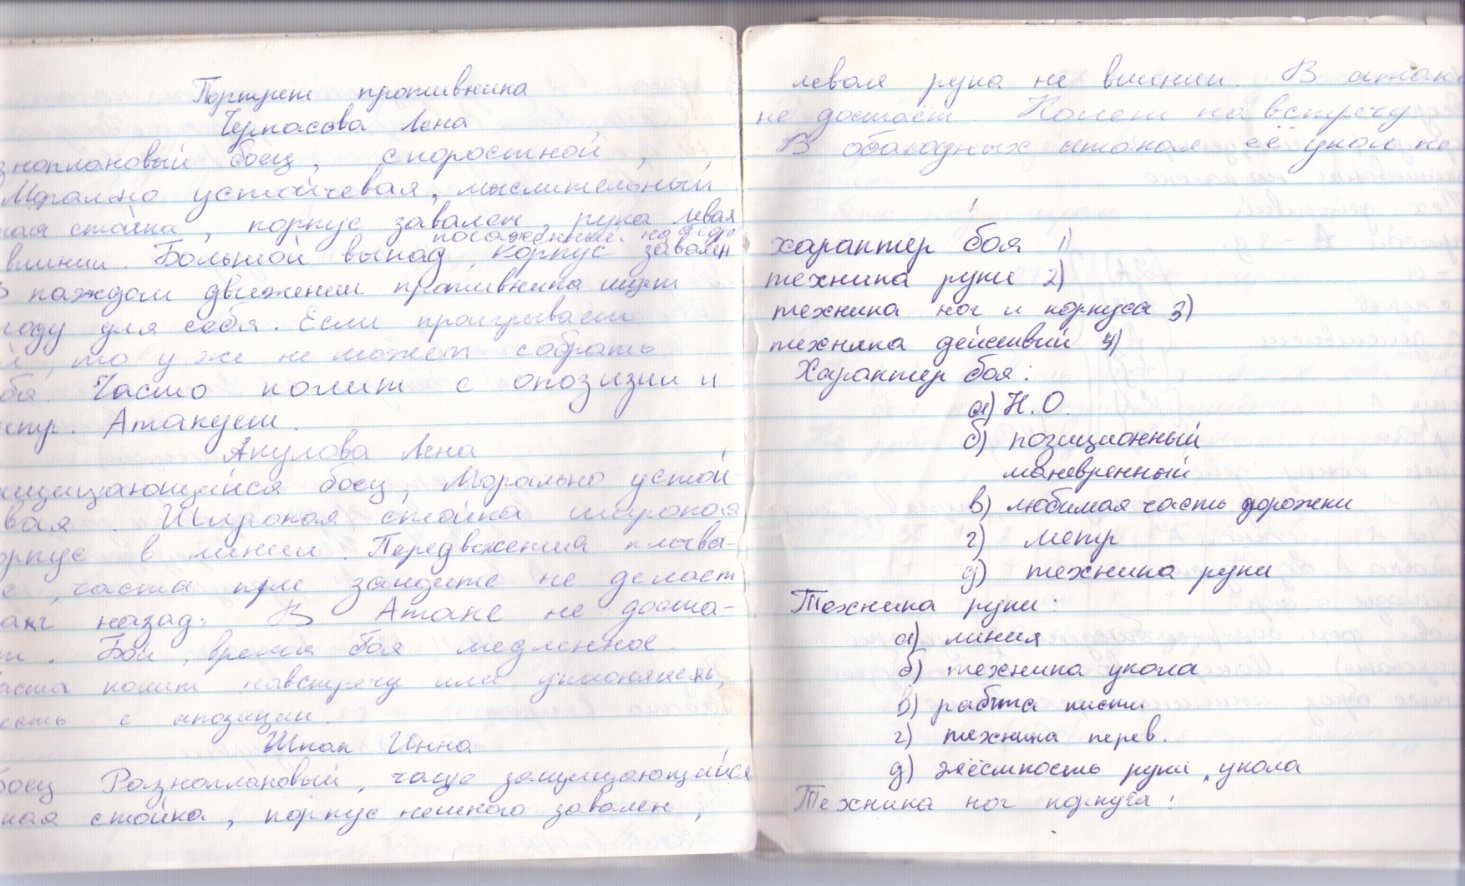 Портрет противника
Черкасова Лена
зноплановый боец, скоростной,
Морално устойчевая, мыслительный
кая стойка, корпус завален, рука левая
посаженный на
влинии. Большой выпад, корпус завален
В каждом движении противника ищет
году для себя. Если проигрывает
й, то уже не может собрать
бя. Часто колит с опозизии и
нтр. Атакует.
Акулова Лена
щищающийся боец, Морально устой-
вая. Широкая стойка широкая
орпус в линии. Передвежения плавы-
е, часта при защите не делает
шаг назад. В Атаке не доста-
т. Бой, время боя медленное.
аста колит навстречу или уклоняясь,
есть с апозиции.
Шпак Инна
боец Разноплановый, чаще защищающийся
кая стойка, корпус немного завален,
левая рука не влинии. В атаке
не достаёт. Колет на встречу
В обаюдных атаках её укол не
характер боя 1)
техника руки 2)
техника ног и корпуса 3)
техника действий 4)
Характер боя:
а) Н.О.
б) позиционный
маневренный
в) любимая часть дорожки
г) метр
д) техника руки
Техника руки:
а) линия
б) техника укола
в) работа кисти
г) техника перев.
д) жёсткость руки, укола
Техника ног корпуса: